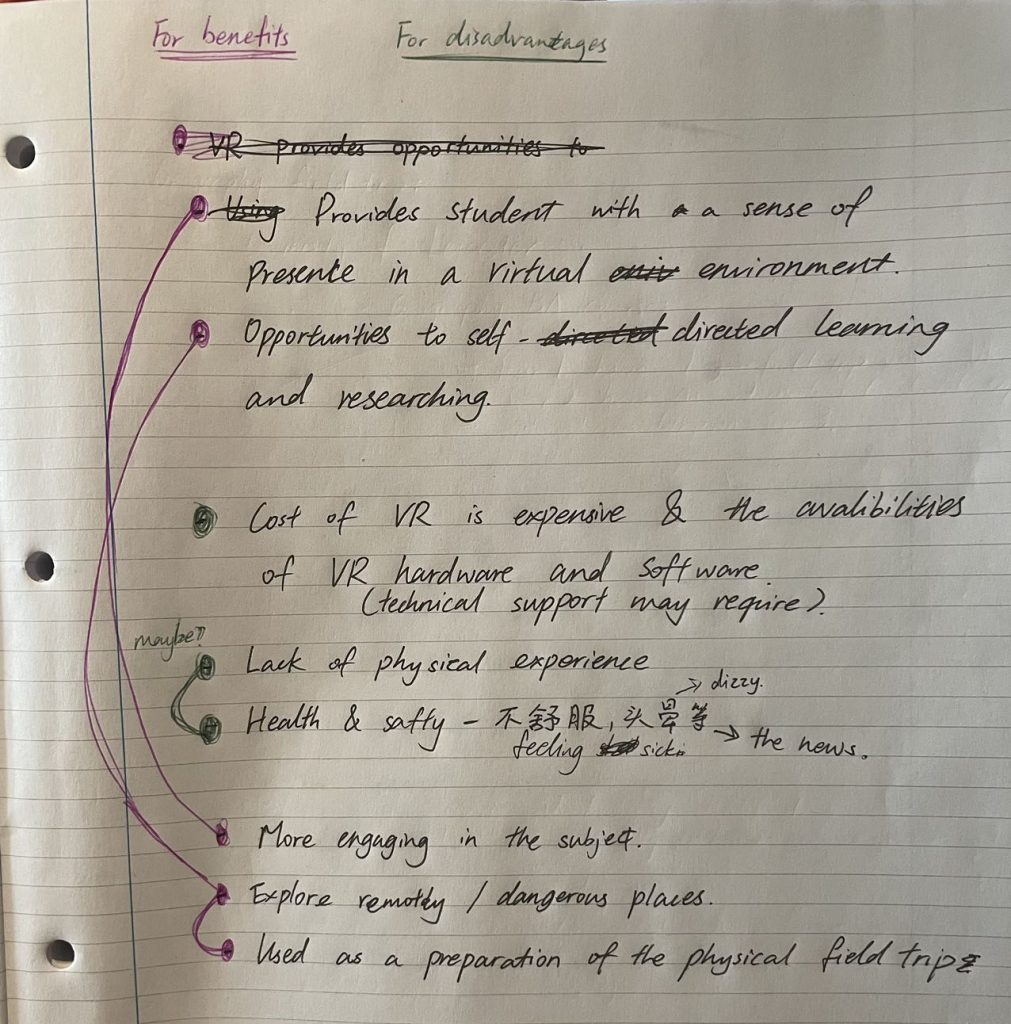 For benefits
For disadvantages
VR provides opportunities to
Using Provides student with a a sense of
Presente in a virtual envir environment.
Opportunities to self - directed directed learning
and researching.
Cost of VR is expensive & the avalibilities
of VR hardware and software.
(technical support may require).
maybe?
Lack of physical experience
→ dizzy.
Health & safty - 不舒服, 头晕等
feeling sick. → the news.
More engaging in the subject.
Explore remotely / dangerous places.
Used as a preparation of the physical field trip